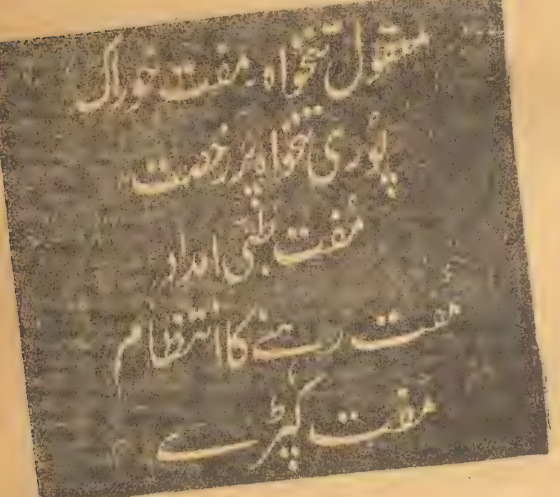 معقول تنخواہ۔ مفت خوراک
پُوری تنخواہ پر رخصت
مُفت طبّی امداد
مفت رہنے کا انتظام
مفت کپڑے